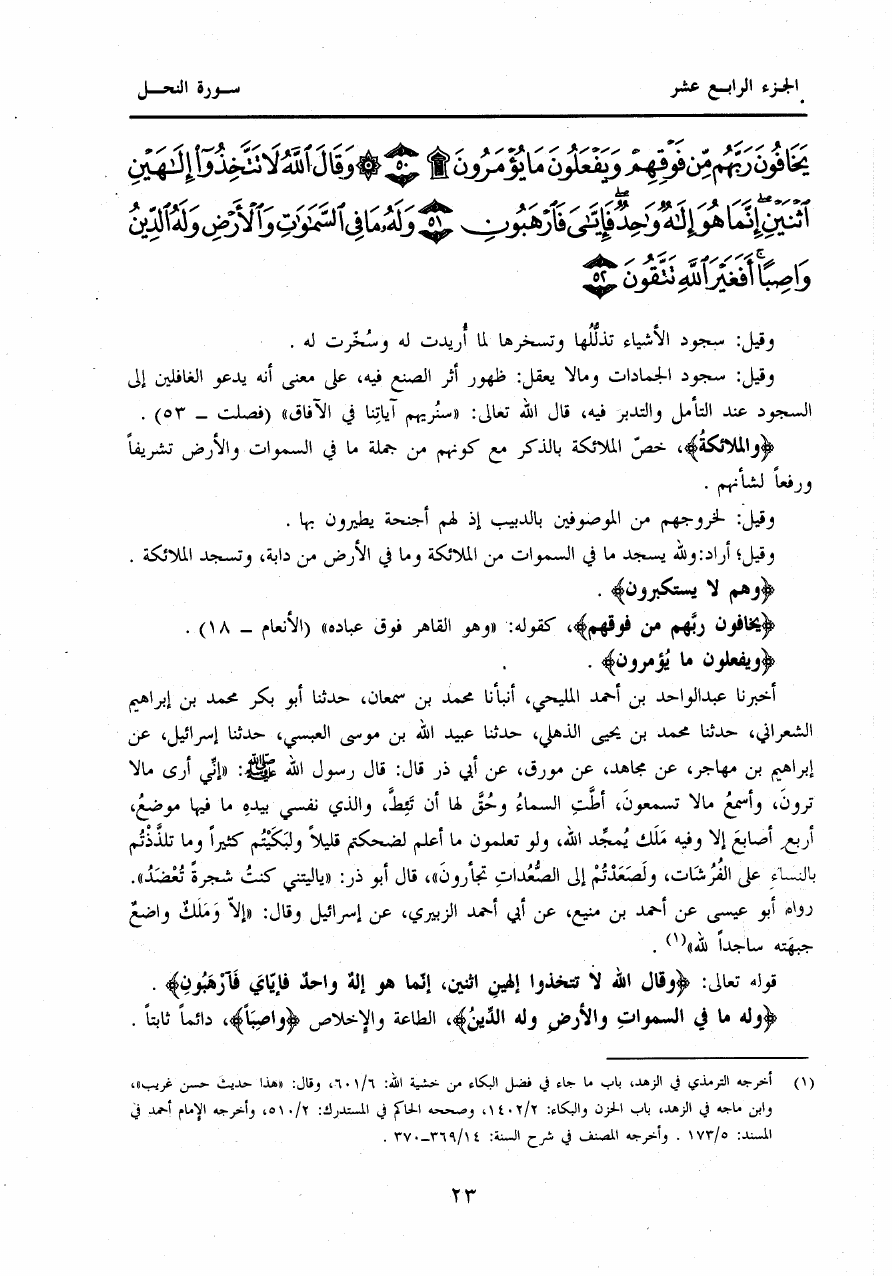 الجزء الرابع عشر
سورة النحل
يَخَافُونَ رَبَّهُم مِّن فَوْقِهِمْ وَيَفْعَلُونَ مَا يُؤْمَرُونَ ۩ ٥٠ ۞ وَقَالَ ٱللَّهُ لَا تَتَّخِذُوٓا۟ إِلَـٰهَيْنِ
ٱثْنَيْنِ ۖ إِنَّمَا هُوَ إِلَـٰهٌ وَٰحِدٌ ۖ فَإِيَّـٰىَ فَٱرْهَبُونِ ٥١ وَلَهُۥ مَا فِى ٱلسَّمَـٰوَٰتِ وَٱلْأَرْضِ وَلَهُ ٱلدِّينُ
وَاصِبًا ۚ أَفَغَيْرَ ٱللَّهِ تَتَّقُونَ ٥٢
وقيل: سجود الأشياء تذلُّلُها وتسخرها لما أُريدت له وسُخّرت له .
وقيل: سجود الجمادات ومالا يعقل: ظهور أثر الصنع فيه، على معنى أنه يدعو الغافلين إلى
السجود عند التأمل والتدبر فيه، قال الله تعالى: «سنُريهم آياتِنا في الآفاق» (فصلت ــ ٥٣) .
﴿والملائكةُ﴾، خصّ الملائكة بالذكر مع كونهم من جملة ما في السموات والأرض تشريفاً
ورفعاً لشأنهم .
وقيل: لخروجهم من الموصوفين بالدبيب إذ لهم أجنحة يطيرون بها .
وقيل؛ أراد:ولله يسجد ما في السموات من الملائكة وما في الأرض من دابة، وتسجد الملائكة .
﴿وهم لا يستكبرون﴾ .
﴿يخافون ربَّهم من فوقهم﴾، كقوله: «وهو القاهر فوق عباده» (الأنعام ــ ١٨) .
﴿ويفعلون ما يُؤمرون﴾ .
أخبرنا عبدالواحد بن أحمد المليحي، أنبأنا محمد بن سمعان، حدثنا أبو بكر محمد بن إبراهيم
الشعراني، حدثنا محمد بن يحيى الذهلي، حدثنا عبيد الله بن موسى العبسي، حدثنا إسرائيل، عن
إبراهيم بن مهاجر، عن مجاهد، عن مورق، عن أبي ذر قال: قال رسول الله ﷺ: «إنِّي أرى مالا
ترونَ، وأسمعُ مالا تسمعونَ، أطَّتِ السماءُ وحُقَّ لها أن تَئِطَّ، والذي نفسي بيدهِ ما فيها موضعُ،
أربعِ أصابعَ إلا وفيه مَلَك يُمجِّد الله، ولو تعلمون ما أعلم لضحكتم قليلاً ولبَكَيْتُم كثيراً وما تلذَّذْتُم
بالنساءِ على الفُرُشات، ولَصَعَدْتُمْ إلى الصُّعُداتِ تجأرونَ»، قال أبو ذر: «ياليتني كنتُ شجرةً تُعْضَدُ».
رواه أبو عيسى عن أحمد بن منيع، عن أبي أحمد الزبيري، عن إسرائيل وقال: «إلاّ وَمَلَكٌ واضعٌ
جبهَته ساجداً لله»(١) .
قوله تعالى: ﴿وقال الله لا تتخذوا إلهين اثنين، إنّما هو إلهٌ واحدٌ فإيّايَ فَآرْهَبُونِ﴾ .
﴿وله ما في السمواتِ والأرضِ وله الدِّينُ﴾، الطاعة والإخلاص ﴿واصِبَاً﴾، دائماً ثابتاً .
(١) أخرجه الترمذي في الزهد، باب ما جاء في فضل البكاء من خشية الله: ٦٠١/٦، وقال: «هذا حديث حسن غريب»،
وابن ماجه في الزهد، باب الحزن والبكاء: ١٤٠٢/٢، وصححه الحاكم في المستدرك: ٥١٠/٢، وأخرجه الإمام أحمد في
المسند: ١٧٣/٥ . وأخرجه المصنف في شرح السنة: ٣٦٩/١٤ــ٣٧٠ .
٢٣